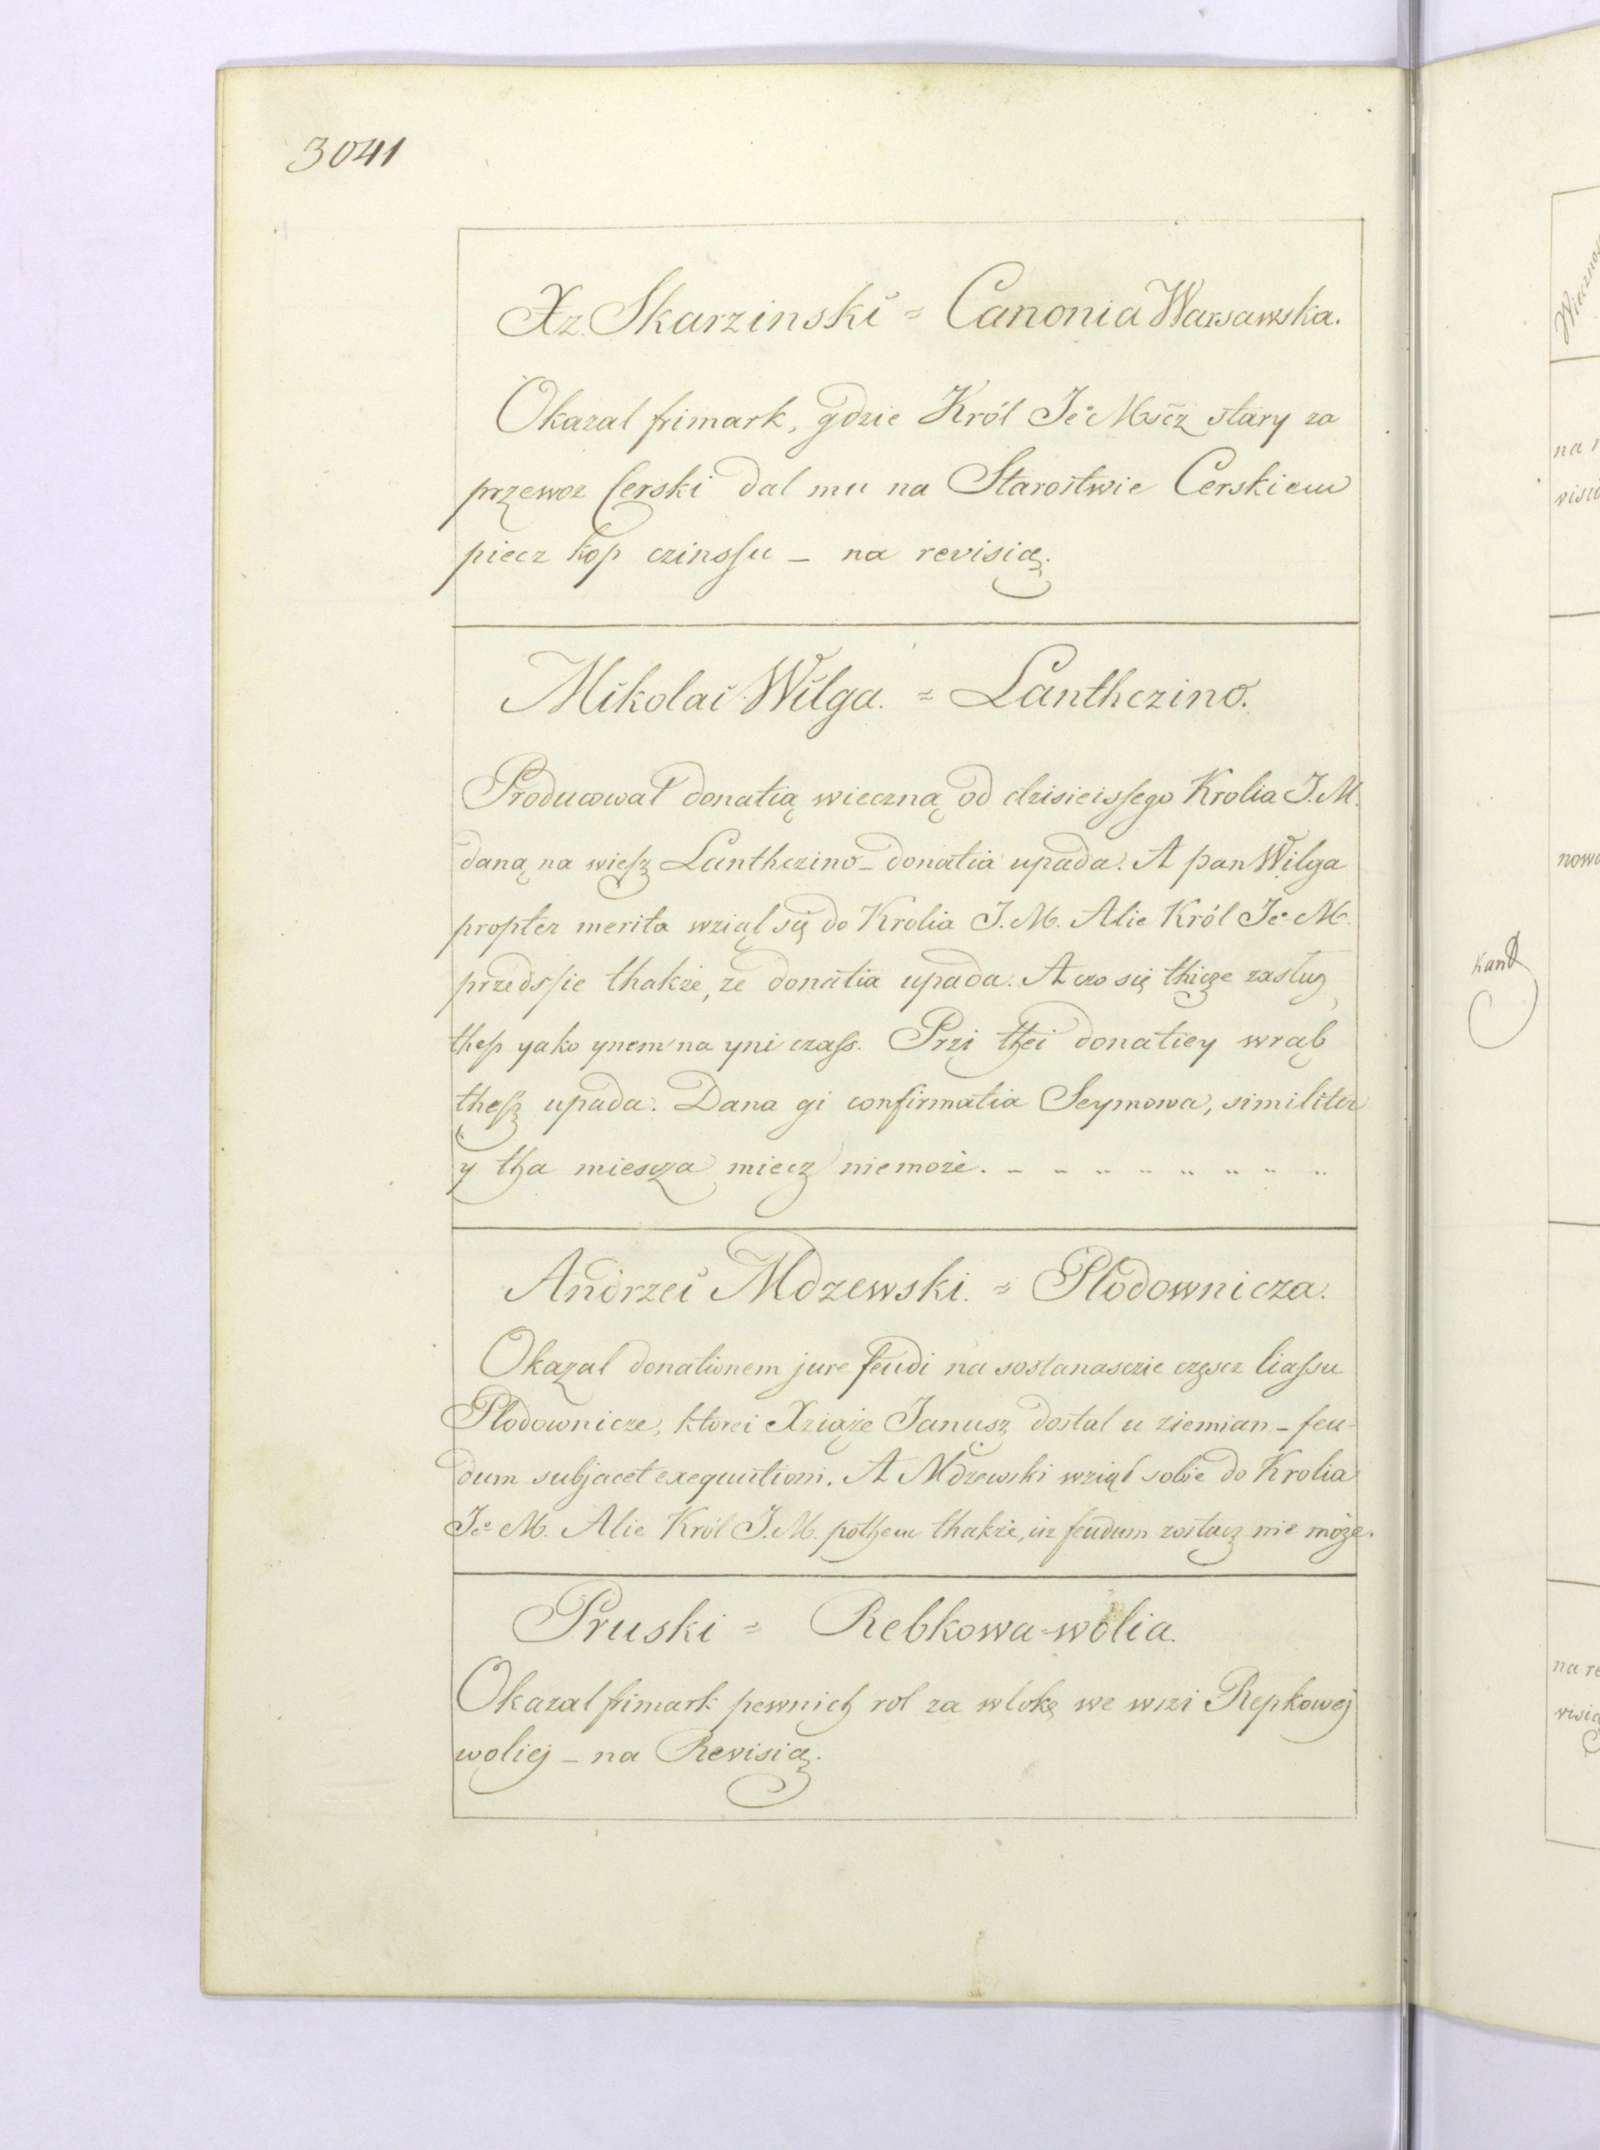 3041
Xz. Skarzinski = Canonia Warsawska.
Okazal frimark, gdzie Król Jeº Mścz stary za
przewoz Cerski dal mu na Starostwie Cerskiem
piecz kop czinssu – na revisią.
Mikolai Wilga. = Lanthczino.
Producował donatią wieczną od dzisieissego Krolia J.M.
daną na wiesz Lanthczino – donatia upada. A pan Wilga
propter merita wziął się do Krolia J.M. Alie Król Jeº M.
przedssie thakże, że donatia upada. A czo się thicze zasług
thesz yako ynem na yni czass. Przi thei donatiey wrąb
thesz upada. Dana gi confirmatia Seymowa, similiter
y tha miescza miecz niemoże.
Andrzei Mdzewski. = Plodownicza.
Okazal donationem jure feudi na sostanasczie częscz liassu
Plodownicze, ktorei Xziąże Janusz dostal u ziemian – feu-
dum subjacet exequutioni. A Mdzewski wziął sobie do Krolia
Jeº M. Alie Król J.M. pothem thakże, iż feudum zostacz nie może.
Pruski = Rebkowa-wolia.
Okazal frimark pewnich rol za wlokę we wszi Repkowej
woliej – na Revisią.
kan
na
nowo
na re